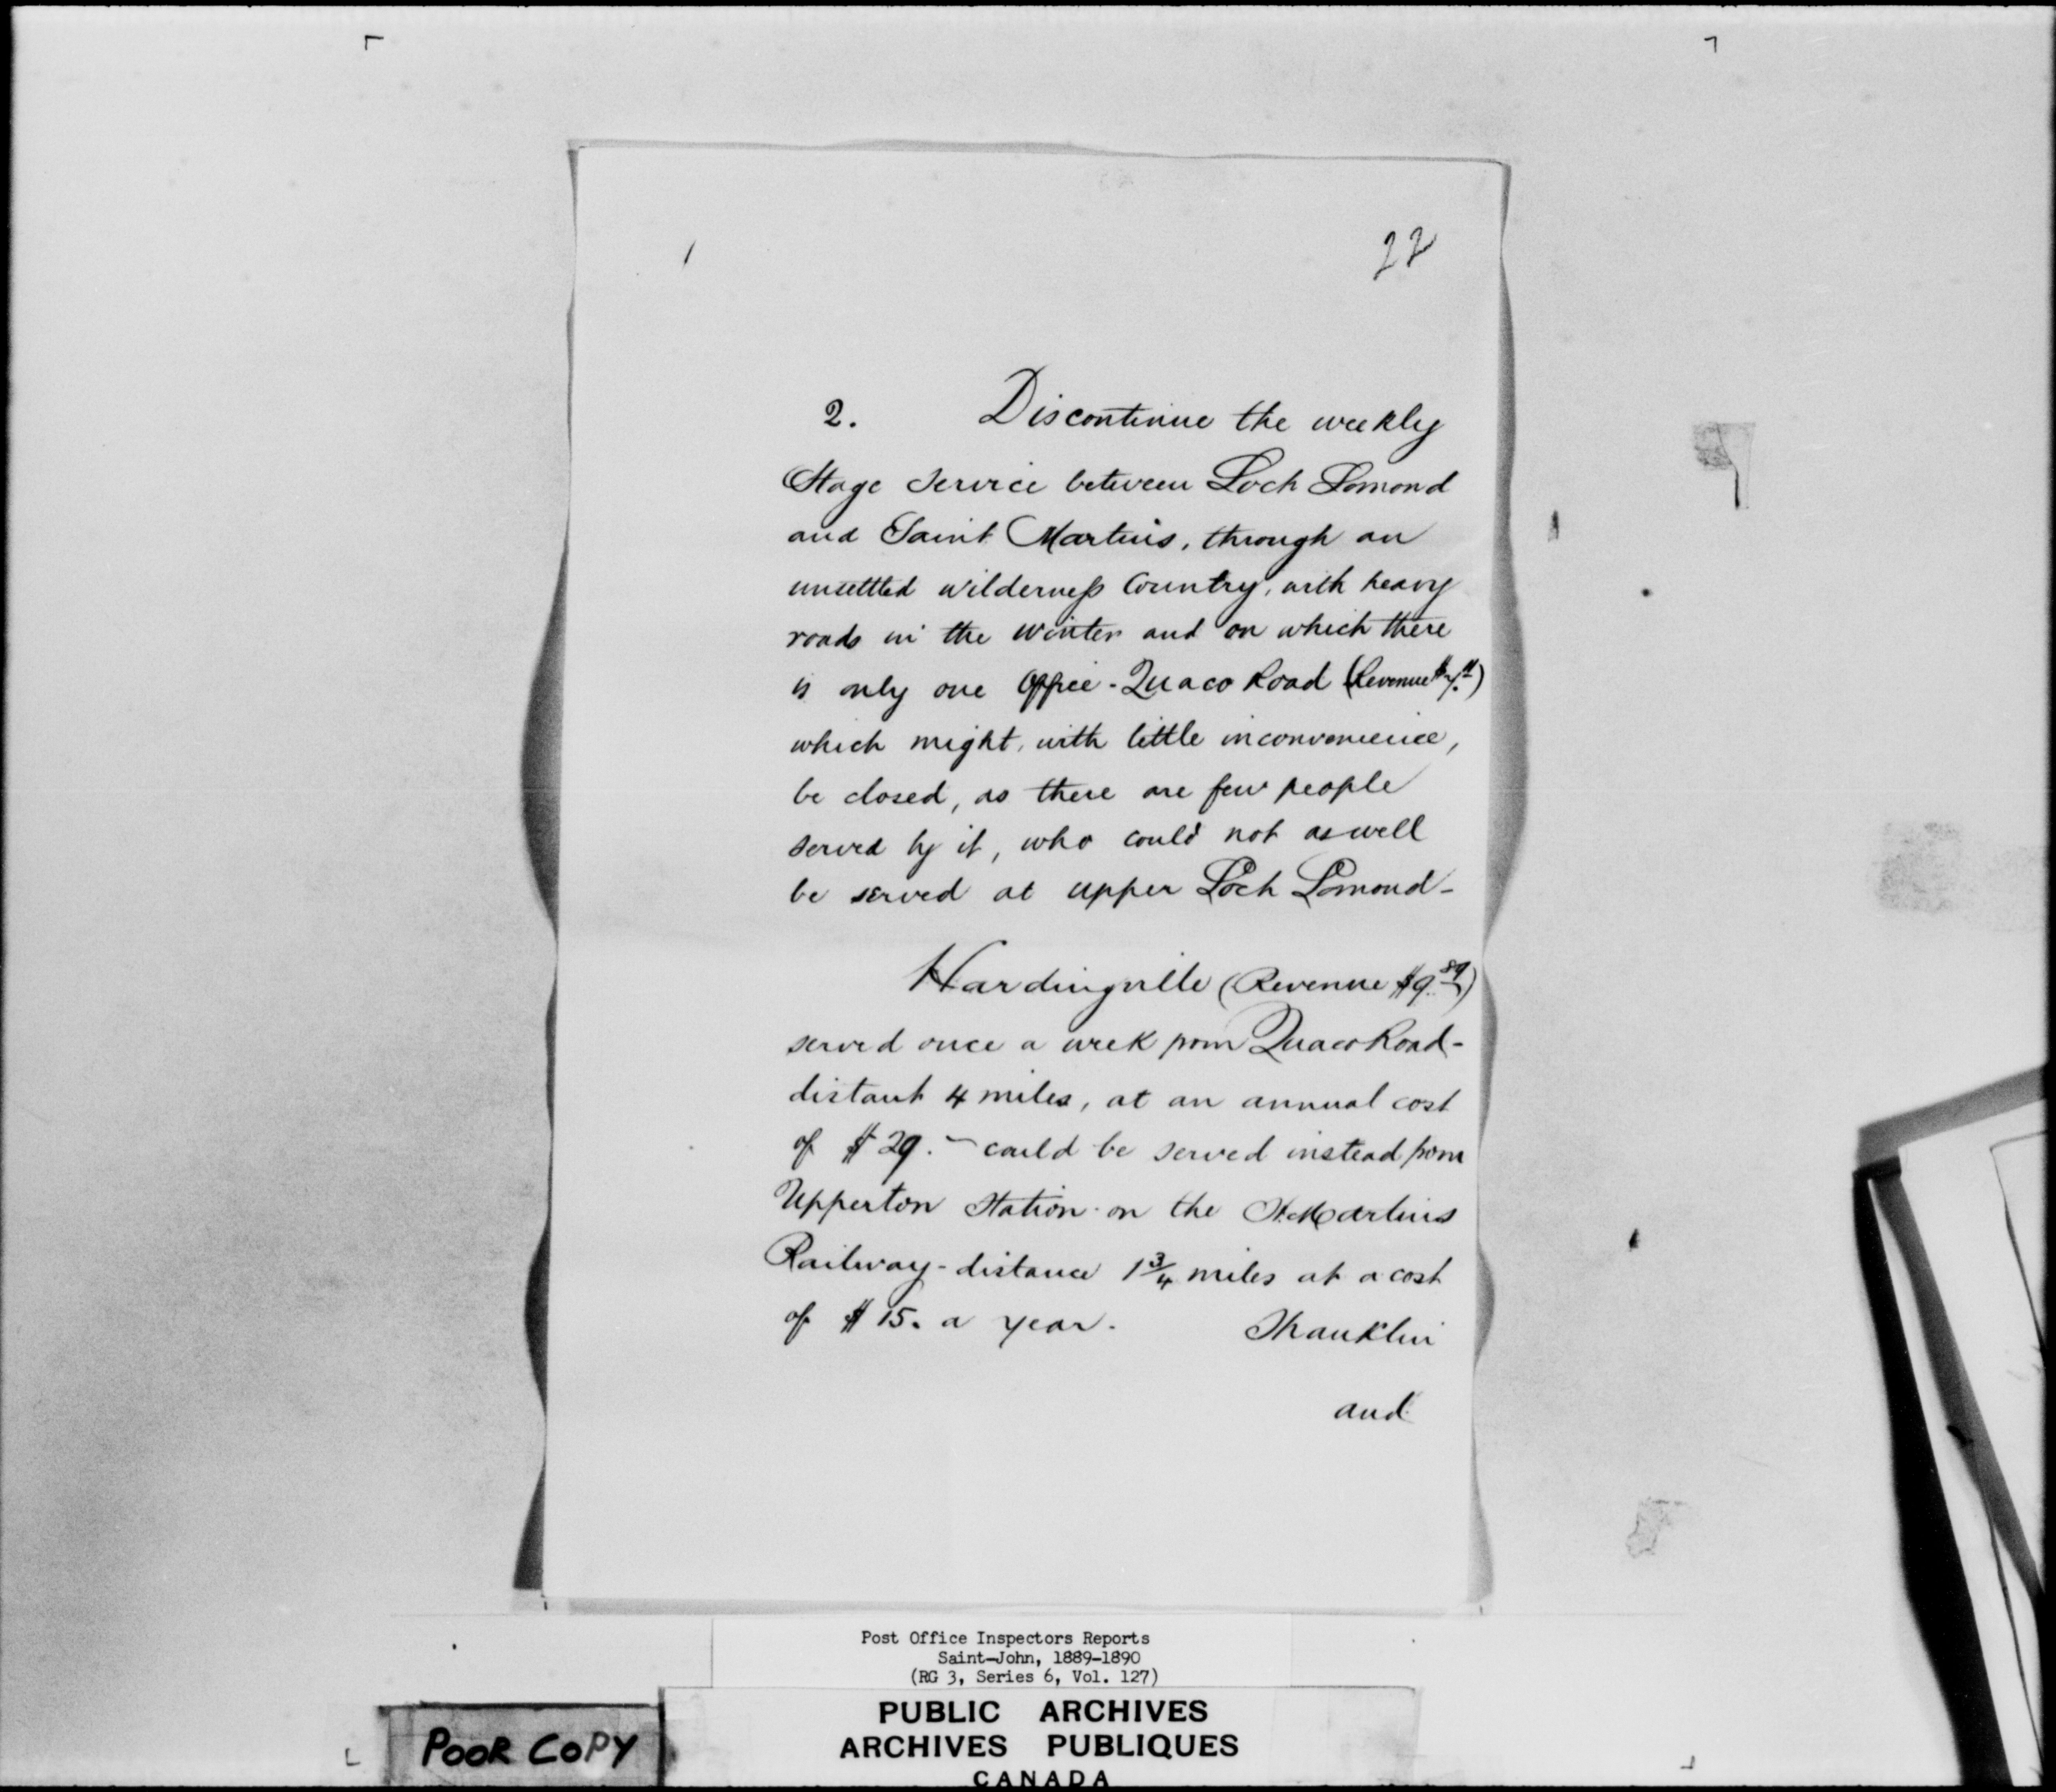 22
2. Discontinue the weekly
Stage Service between Loch Lomond
and Saint Martins, through an
unsettled wilderness Country, with heavy
roads in the Winter and on which there
is only one Office - Quaco Road (Revenue
which might, with little inconvenience,
be closed, as there are few people
served by it, who could not as well
be served at upper Loch Lomond -
Hardingville (Revenue $9.89)
served once a week from Quaco Road -
distant 4 miles, at an annual cost
of $29. - could be served instead from
Upperton Station - on the St. Martins
Railway - distance 1 3/4 miles at a cost
of $15. a year. Shanklin
and
Post Office Inspectors Reports
Saint-John, 1889-1890
(RG 3, Series 6, Vol. 127)
PUBLIC ARCHIVES
ARCHIVES PUBLIQUES
CANADA
POOR COPY